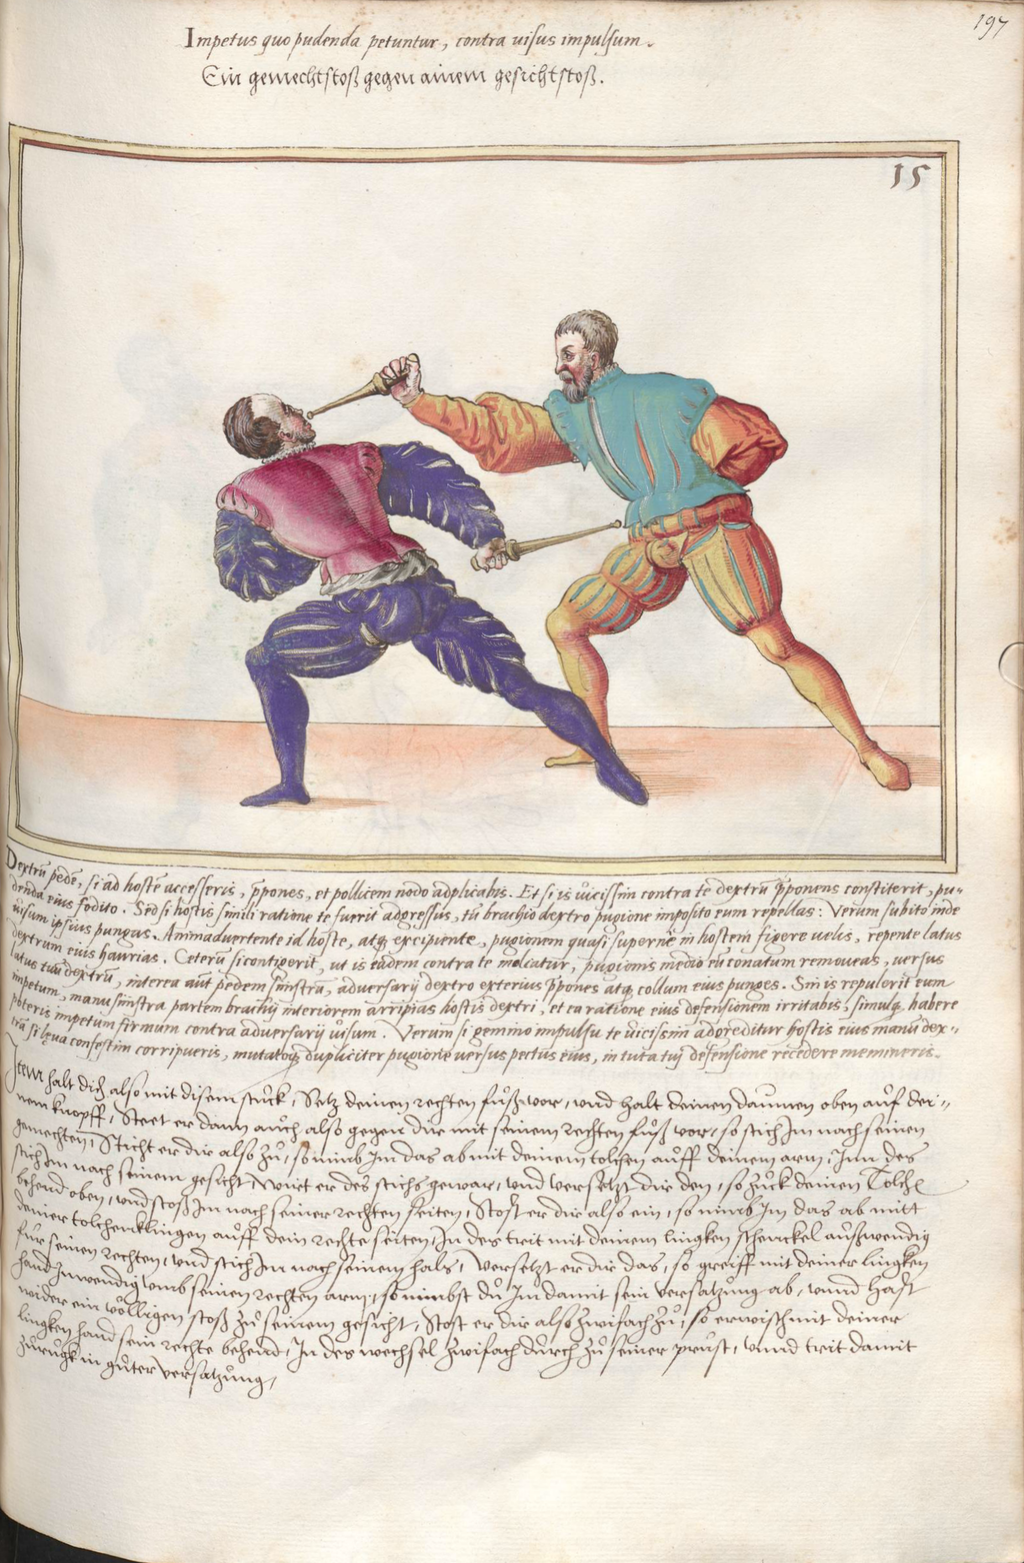 197
Impetus quo pudenda petuntur, contra uisus impulsum.
Ein gemechtstoß gegen ainem gesichtstoß.
15
Dextrũ pedẽ, si ad hostẽ accesseris, p̃pones, et pollicem nodo adplicabis. Et si is uicissim contra te dextrũ p̃ponens constiterit, pu-
denda eius fodito. Sed si hostis simili ratione te fuerit adgressus, tũ brachio dextro pugione imposito eum repellas: Verum subito inde
uisum ipsius pungas. Animaduertente id hoste, atq; excipiente, pugionem quasi supernè in hostem figere uelis, repente latus
dextrum eius haurias. Ceterũ si contigerit, ut is eadem contra te moliatur, pugionis medio eũ conatum remoueas, uersus
latus tuũ dextrũ, interea aũt pedem sinistrũ, aduersarij dextro exterius p̃pones atq; collum eius punges. Sin is repulerit eum
impetum, manu sinistra partem brachij interiorem arripias hostis dextri, et ea ratione eius defensionem irritabis, simulq; habere
poteris impetum firmum contra aduersarij uisum. Verum si gemino impulsu te uicissim adgreditur hostis eius manũ dex-
trã si læua confestim corripueris, mutatoq; dupliciter pugione uersus pectus eius, in tuta tuj defensione recedere memineris.
Item halt dich also mit disem stuckh, Setz deinen rechten fuͦß vor, vnnd halt deinen daumen oben auf dei-
nem knopff, Steet er dann auch also gegen dir mit seinem rechten fuͦß vor, so stich Im nach seinen
gemechten, Sticht er dir also zuͦ, so nimb Im das ab mit deinem tolchen auff deinem arm, Inn des
stich Im nach seinem gesicht, Wirt er des stichs gewar, vnd versetzt dir den, so zuckh deinen Tolchen
behend oben, vnd stoß Im nach seiner rechten seiten, Stost er dir also ein, so nimb Im das ab mitt
deiner tolchenklingen auff dein rechte seiten, In des trit mit deinem lingken schenckel außwendig
für seinen rechten, vnd stich Im nach seinem hals, Versetzt er dir das, so greiff mit deiner lingken
hand Inwendig vmb seinen rechten arm, so nimbst du Im damit sein versatzung ab, vnnd hast
wider ein völligen stoß zuͦ seinem gesicht, Stost er dir also zwifach zuͦ, so erwisch mit deiner
lingken hand sein rechte behend, In des wechsel zwifach durch zuͦ seiner prust, vnnd trit damit
zurugk in guͦter versatzung,